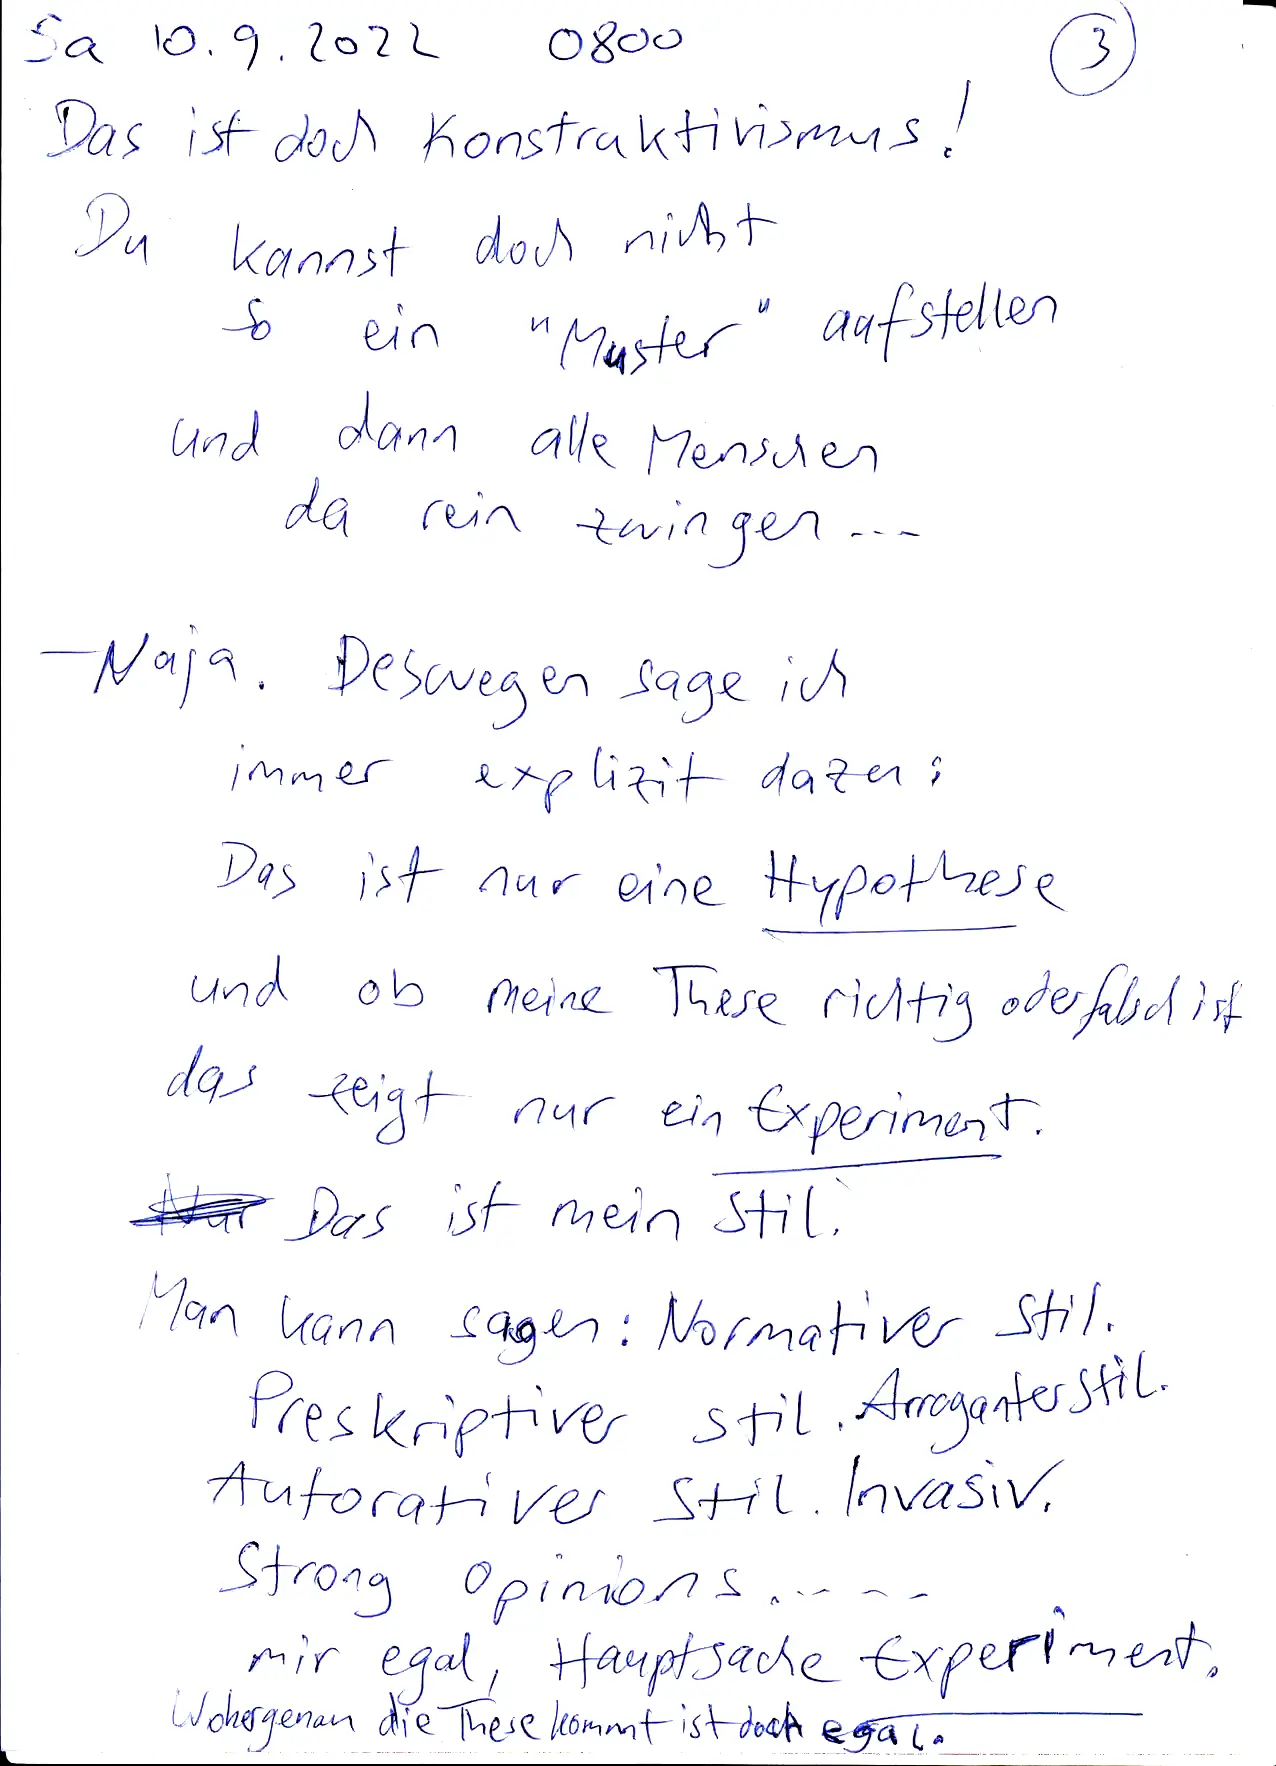 Sa 10.9.2022 0800 3
Das ist doch Konstruktivismus!
Du kannst doch nicht
so ein "Muster" aufstellen
und dann alle Menschen
da rein zwingen...
- Naja. Deswegen sage ich
immer explizit dazu:
Das ist nur eine Hypothese
und ob meine These richtig oder falsch ist
das zeigt nur ein Experiment.
Nur Das ist mein Stil.
Man kann sagen: Normativer Stil.
Preskriptiver Stil. Arroganter Stil.
Autorativer Stil. Invasiv.
Strong Opinions.....
mir egal, Hauptsache Experiment.
Woher genau die These kommt ist doch egal.